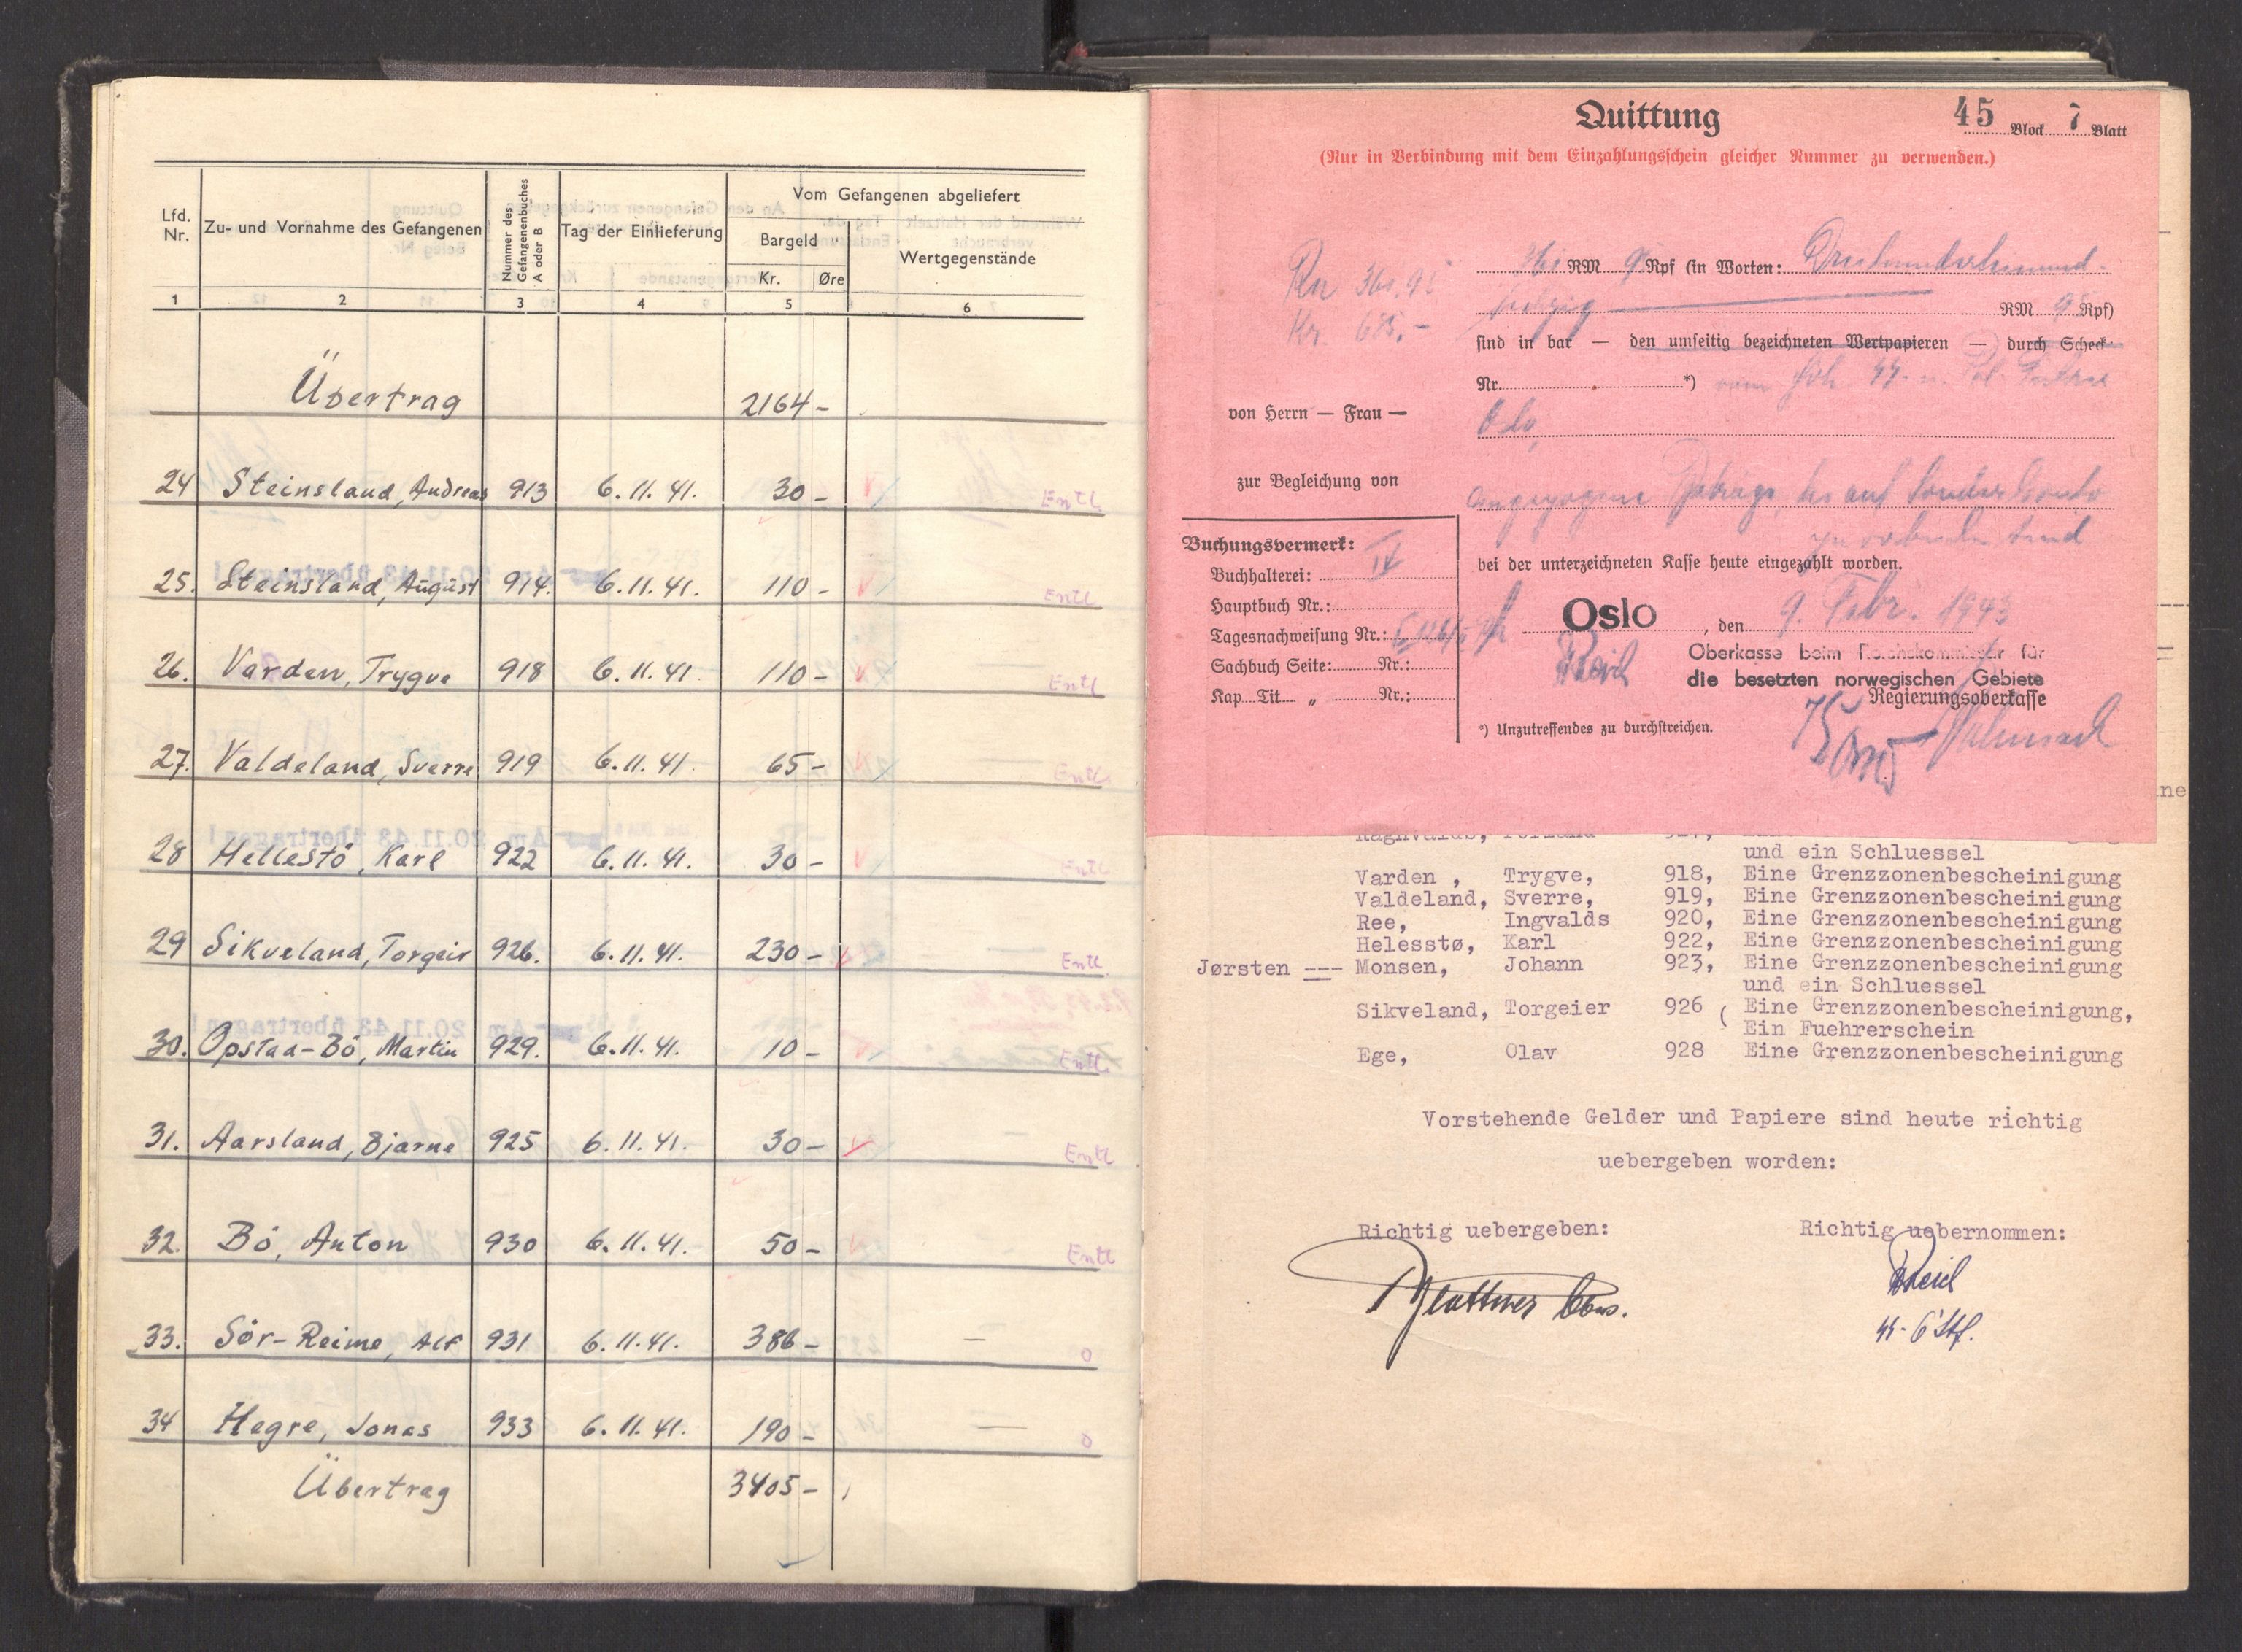 Lfd. Nr.
Zu- und Vornahme des Gefangenen
Nummer des Gefangenenbuches A oder B
Tag der Einlieferung
Vom Gefangenen abgeliefert
Bargeld
Kr. Øre
Wertgegenstände
1 2 3 4 5 6
Übertrag 2164 -
24 Steinsland, Andreas 913 6.11.41. 30 - Entl.
25. Steinsland, August 914. 6.11.41. 110 - Entl
26. Varden, Trygve 918 6.11.41 110 - Entl
27. Valdeland, Sverre 919 6.11.41. 65 - Entl.
28 Hellestö, Karl 922 6.11.41. 30 - Entl
29 Sikveland, Torgeir 926. 6.11.41. 230 - Entl
30. Opstad-Bö, Martin 929. 6.11.41. 10 - Entl.
31. Aarsland, Bjarne 925 6.11.41. 30 - Entl
32. Bö, Anton 930 6.11.41. 50 - Entl
33. Sör-Reime, Alf 931 6.11.41. 386 - — 0
34 Hegre, Jonas 933 6.11.41. 190 - — 0
Übertrag 3405 -
Quittung 45 Block 7 Blatt
(Nur in Verbindung mit dem Einzahlungsschein gleicher Nummer zu verwenden.)
361 RM 95 Rpf (in Worten:
RM 95 Rpf)
Kr. 685.-
sind in bar — den umseitig bezeichneten Wertpapieren — durch Scheck
Nr. *)
von Herrn — Frau —
Oslo
zur Begleichung von
Buchungsvermerk:
bei der unterzeichneten Kasse heute eingezahlt worden.
Buchhalterei: IV
Hauptbuch Nr.:
Tagesnachweisung Nr.:
Sachbuch Seite: Nr.:
Kap Tit „ Nr.:
Oslo, den 9. Febr. 1943
Oberkasse beim Reichskommissar für
die besetzten norwegischen Gebiete
Regierungsoberkasse
*) Unzutreffendes zu durchstreichen.
und ein Schluessel
Varden , Trygve, 918, Eine Grenzzonenbescheinigung
Valdeland, Sverre, 919, Eine Grenzzonenbescheinigung
Ree, Ingvalds 920, Eine Grenzzonenbescheinigung
Helesstø, Karl 922, Eine Grenzzonenbescheinigung
Jørsten --- Monsen, Johann 923, Eine Grenzzonenbescheinigung
und ein Schluessel
Sikveland, Torgeier 926 ( Eine Grenzzonenbescheinigung,
Ein Fuehrerschein
Ege, Olav 928 Eine Grenzzonenbescheinigung
Vorstehende Gelder und Papiere sind heute richtig
uebergeben worden:
Richtig uebergeben: Richtig uebernommen: